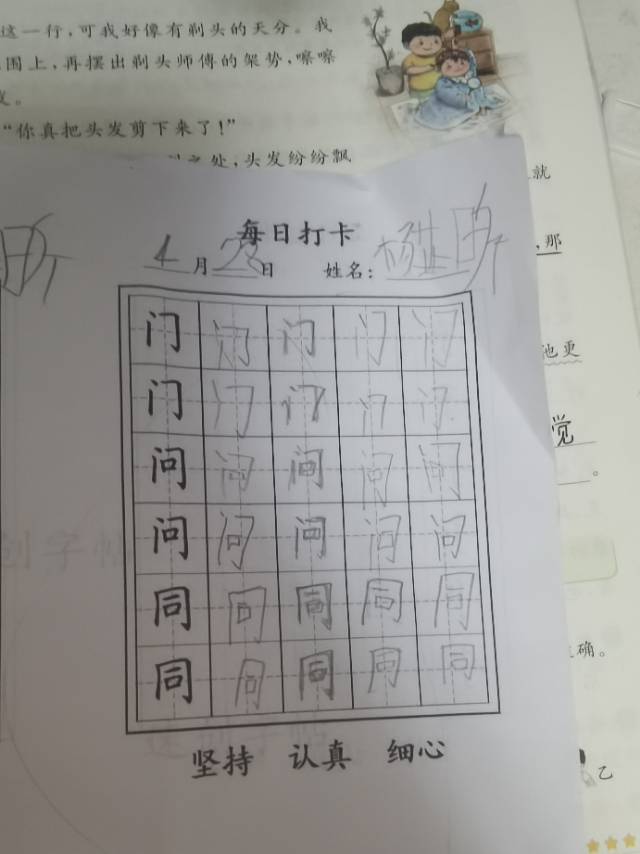 这一行，可我好像有剃头的天分。我
围上，再摆出剃头师傅的架势，嚓嚓
“你真把头发剪下来了！”
之处，头发纷纷飘
就
，那
池更
觉
。
确。
乙
每日打卡
4月23日 姓名：杨 昕
门 门 门 门 门
门 门 门 门 门
问 问 问 问 问
问 问 问 问 问
同 同 同 同 同
同 同 同 同 同
坚持 认真 细心